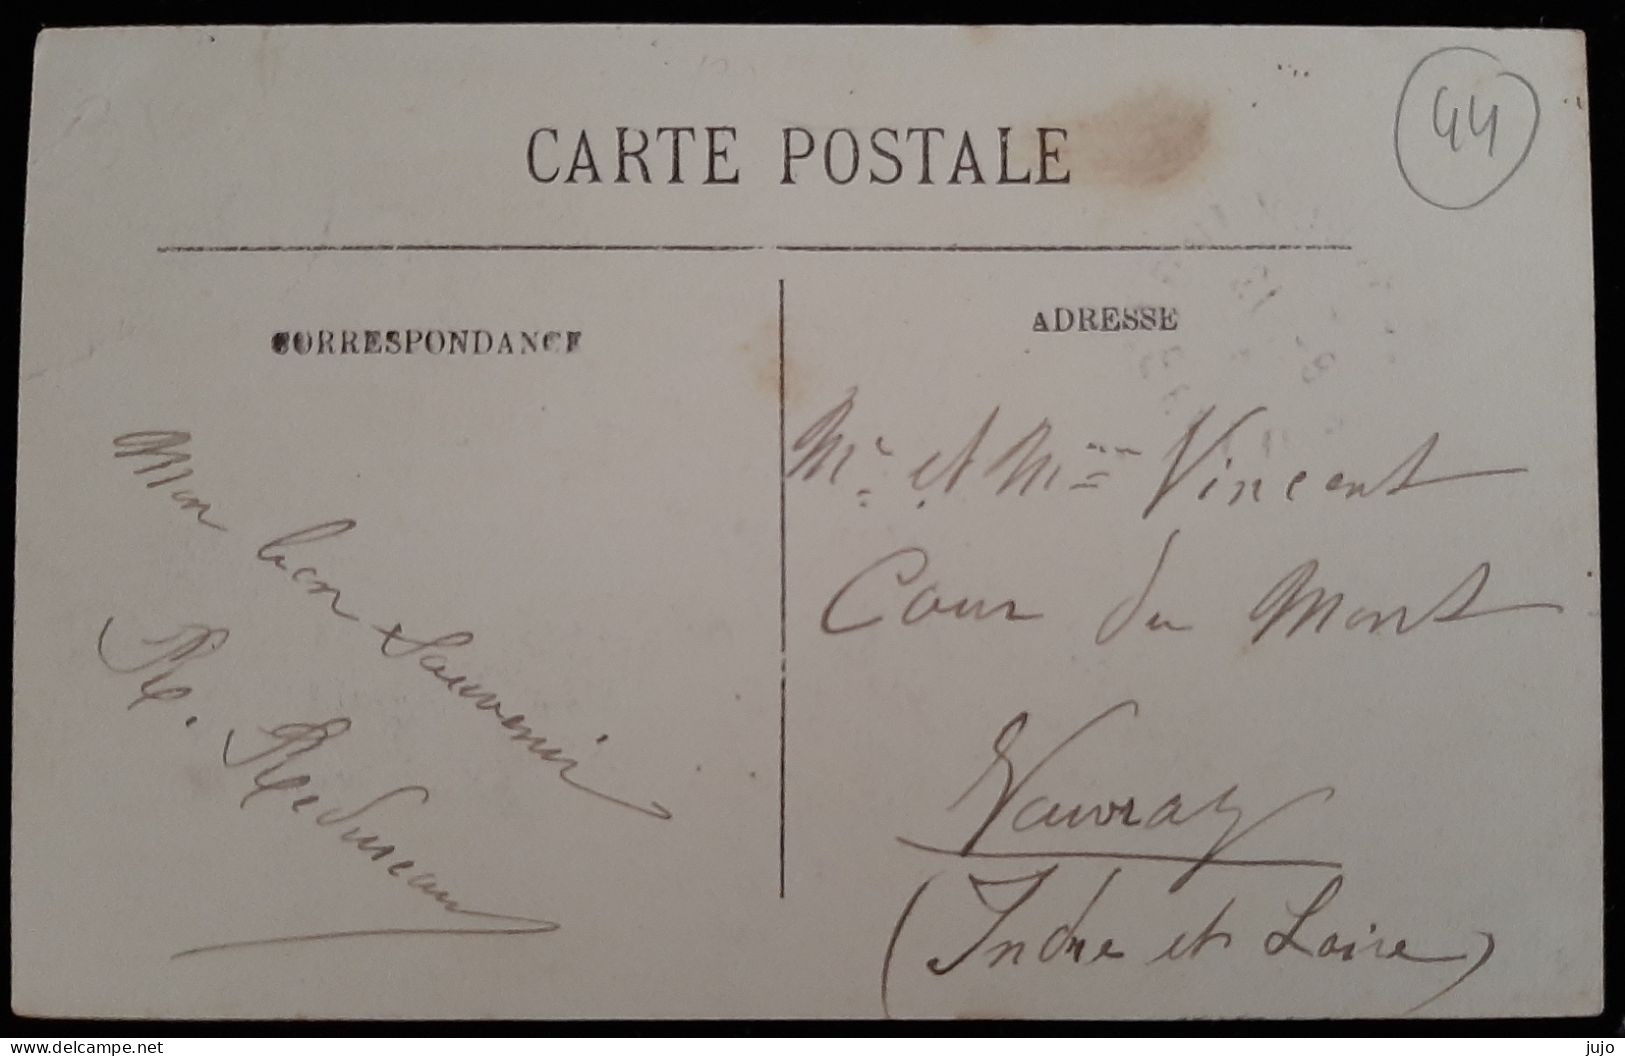 CARTE POSTALE
44
CORRESPONDANCE
ADRESSE
Mon bon Souvenir
R. Reduneau
Mr et Mme Vincent
Cour du Mont
Vouvray
(Indre et Loire)
delcampe.net
jujo